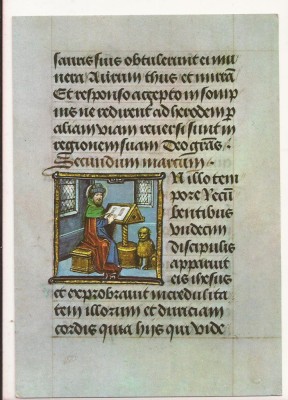 sauris suis obtulerunt ei mu
nera Aurum thus et mirrā
Et responso accepto in somp
nis ne redirent ad herodem p
aliam viam reversi sunt in
regionem suam Deo grās
Secundum marcum
N illo tem
pore Recū
bentibus
undecim
discipulis
apparuit
eis ihesus
et exprobravit incredulita
tem illorum et duriciam
cordis quia hijs qui vide